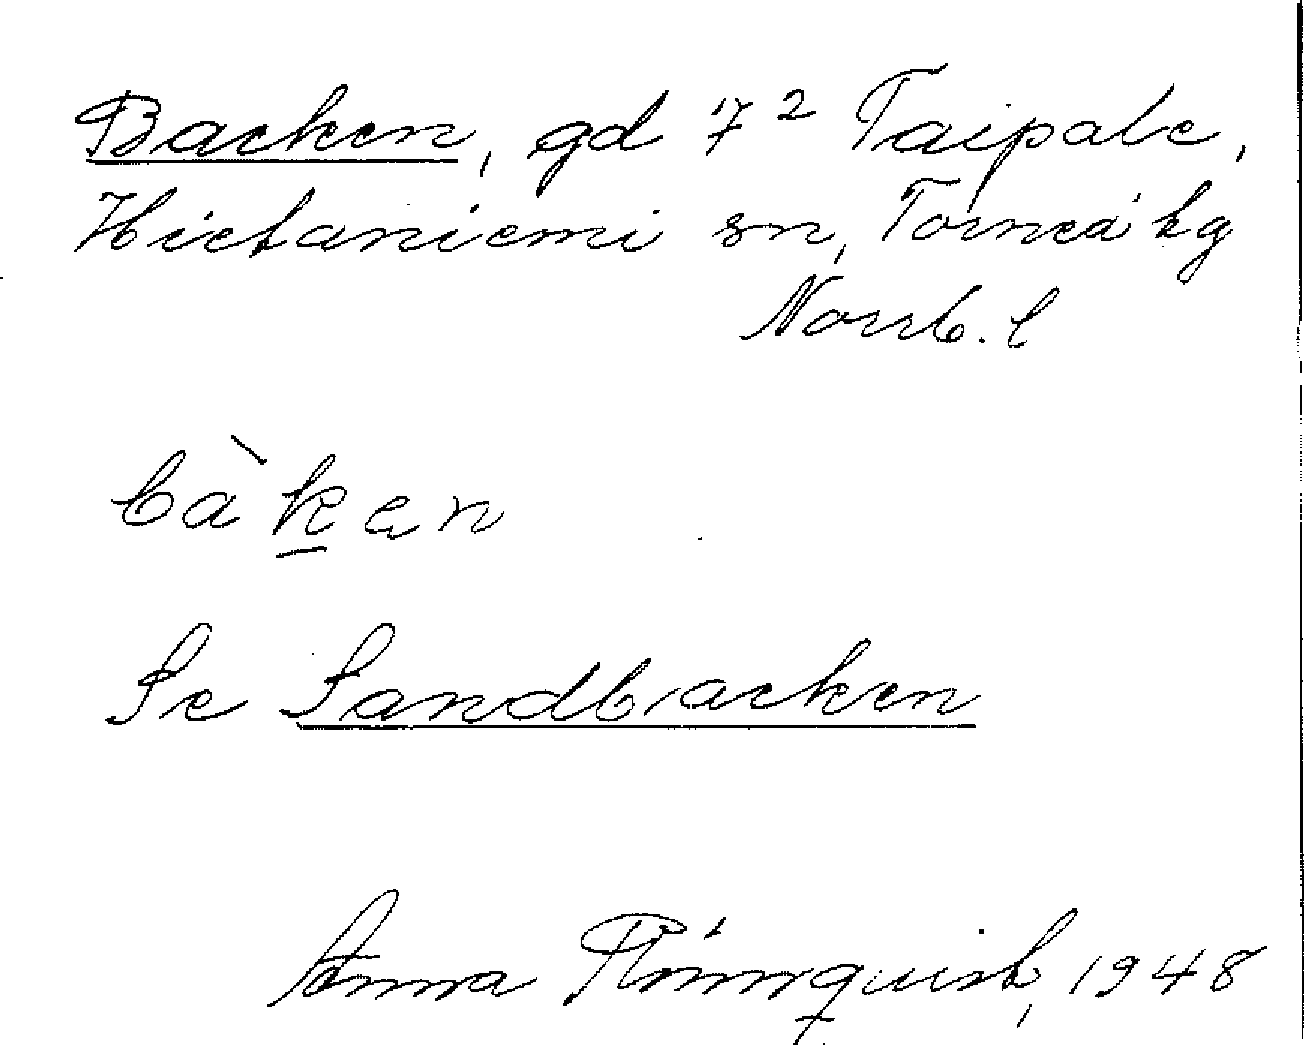 Backen, gd 7² Taipale,
Hietaniemi sn, Torneå tg
Norrb. l
bàken
Se Sandbacken
Anna 1948